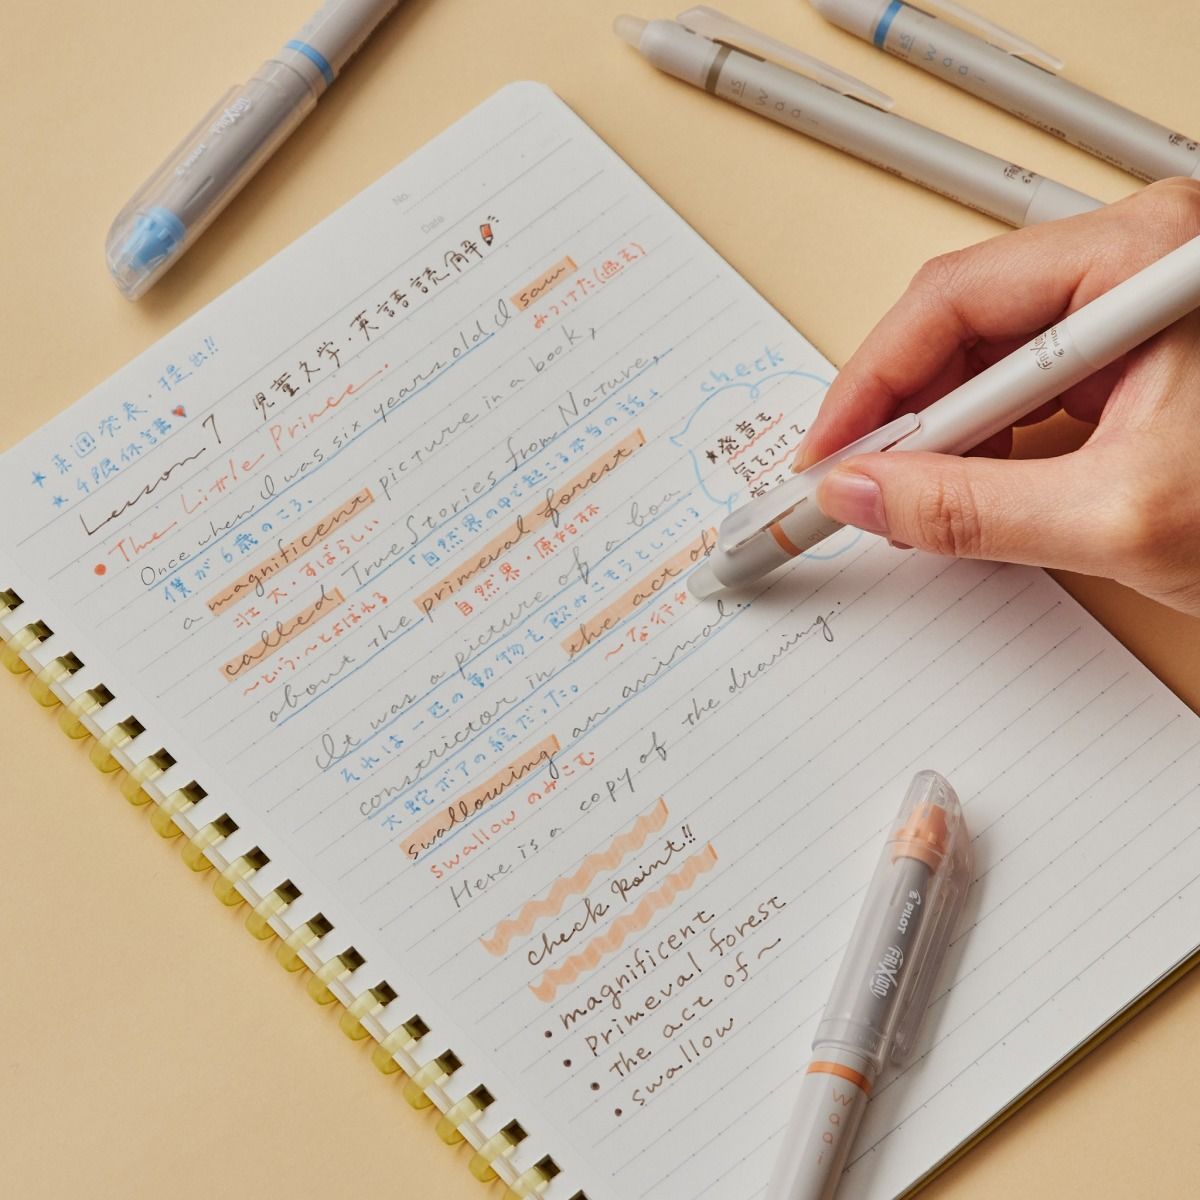 No.
Date
★来週発表・提出!!
★4限 保言書
Lesson 7 児童文学・英語読解
• The Little Prince.
Once when I was six years old I saw
僕が6歳のころ、
みつけた(過去)
a magnificent picture in a book,
壮大・すばらしい
called, True Stories from Nature,
〜という・〜とよばれる
「自然界の中で起こる本当の話」
about the primeval forest.
自然界・原始林
It was a picture of a boa
それは一匹の動物を飲みこもうとしている
constrictor in the act of
大蛇ボアの絵だった。
〜な行
swallowing an animal.
swallow のみこむ
Here is a copy of the drawing.
check
★発音も
気をつけて
check point!!
• magnificent
• Primeval forest
• the act of〜
• swallow
FRIXION
PILOT
FRIXION
Waai
0.5 Waai
0.5 Waai
FRIXION
PILOT